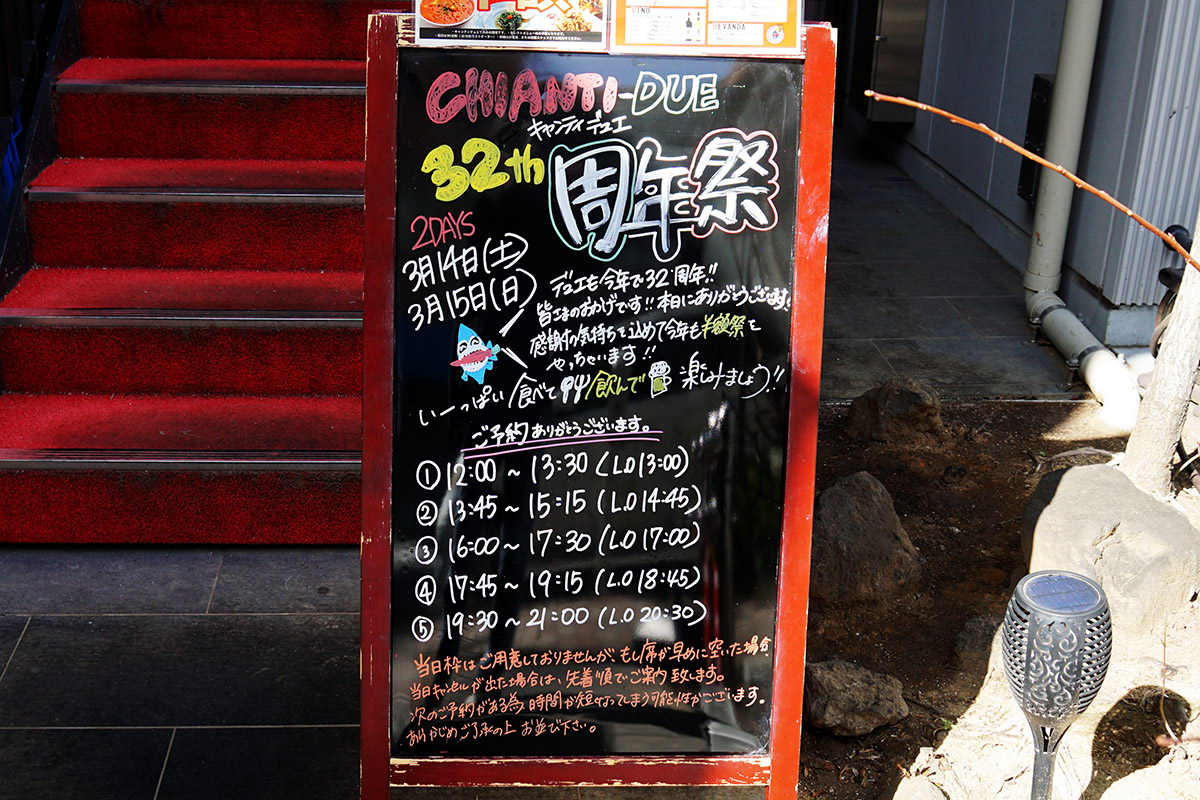 VINO
BEVANDA
CHIANTI-DUE
キャンティ デュエ
32th 周年祭
2DAYS
3月14日(土)
3月15日(日)
デュエも今年で32周年!!
皆さまのおかげです!!本当にありがとうございます!
感謝の気持ちを込めて今年も半額祭を
やっちゃいます!!
いーっぱい食べて 飲んで 楽しみましょう!!
ご予約ありがとうございます。
① 12:00 ~ 13:30 (L.O 13:00)
② 13:45 ~ 15:15 (L.O 14:45)
③ 16:00 ~ 17:30 (L.O 17:00)
④ 17:45 ~ 19:15 (L.O 18:45)
⑤ 19:30 ~ 21:00 (L.O 20:30)
当日枠はご用意しておりませんが、もし席が早めに空いた場合、
当日キャンセルが出た場合は、先着順でご案内致します。
次のご予約がある為、時間が短くなってしまう可能性がございます。
あらかじめご了承の上 お並び下さい。